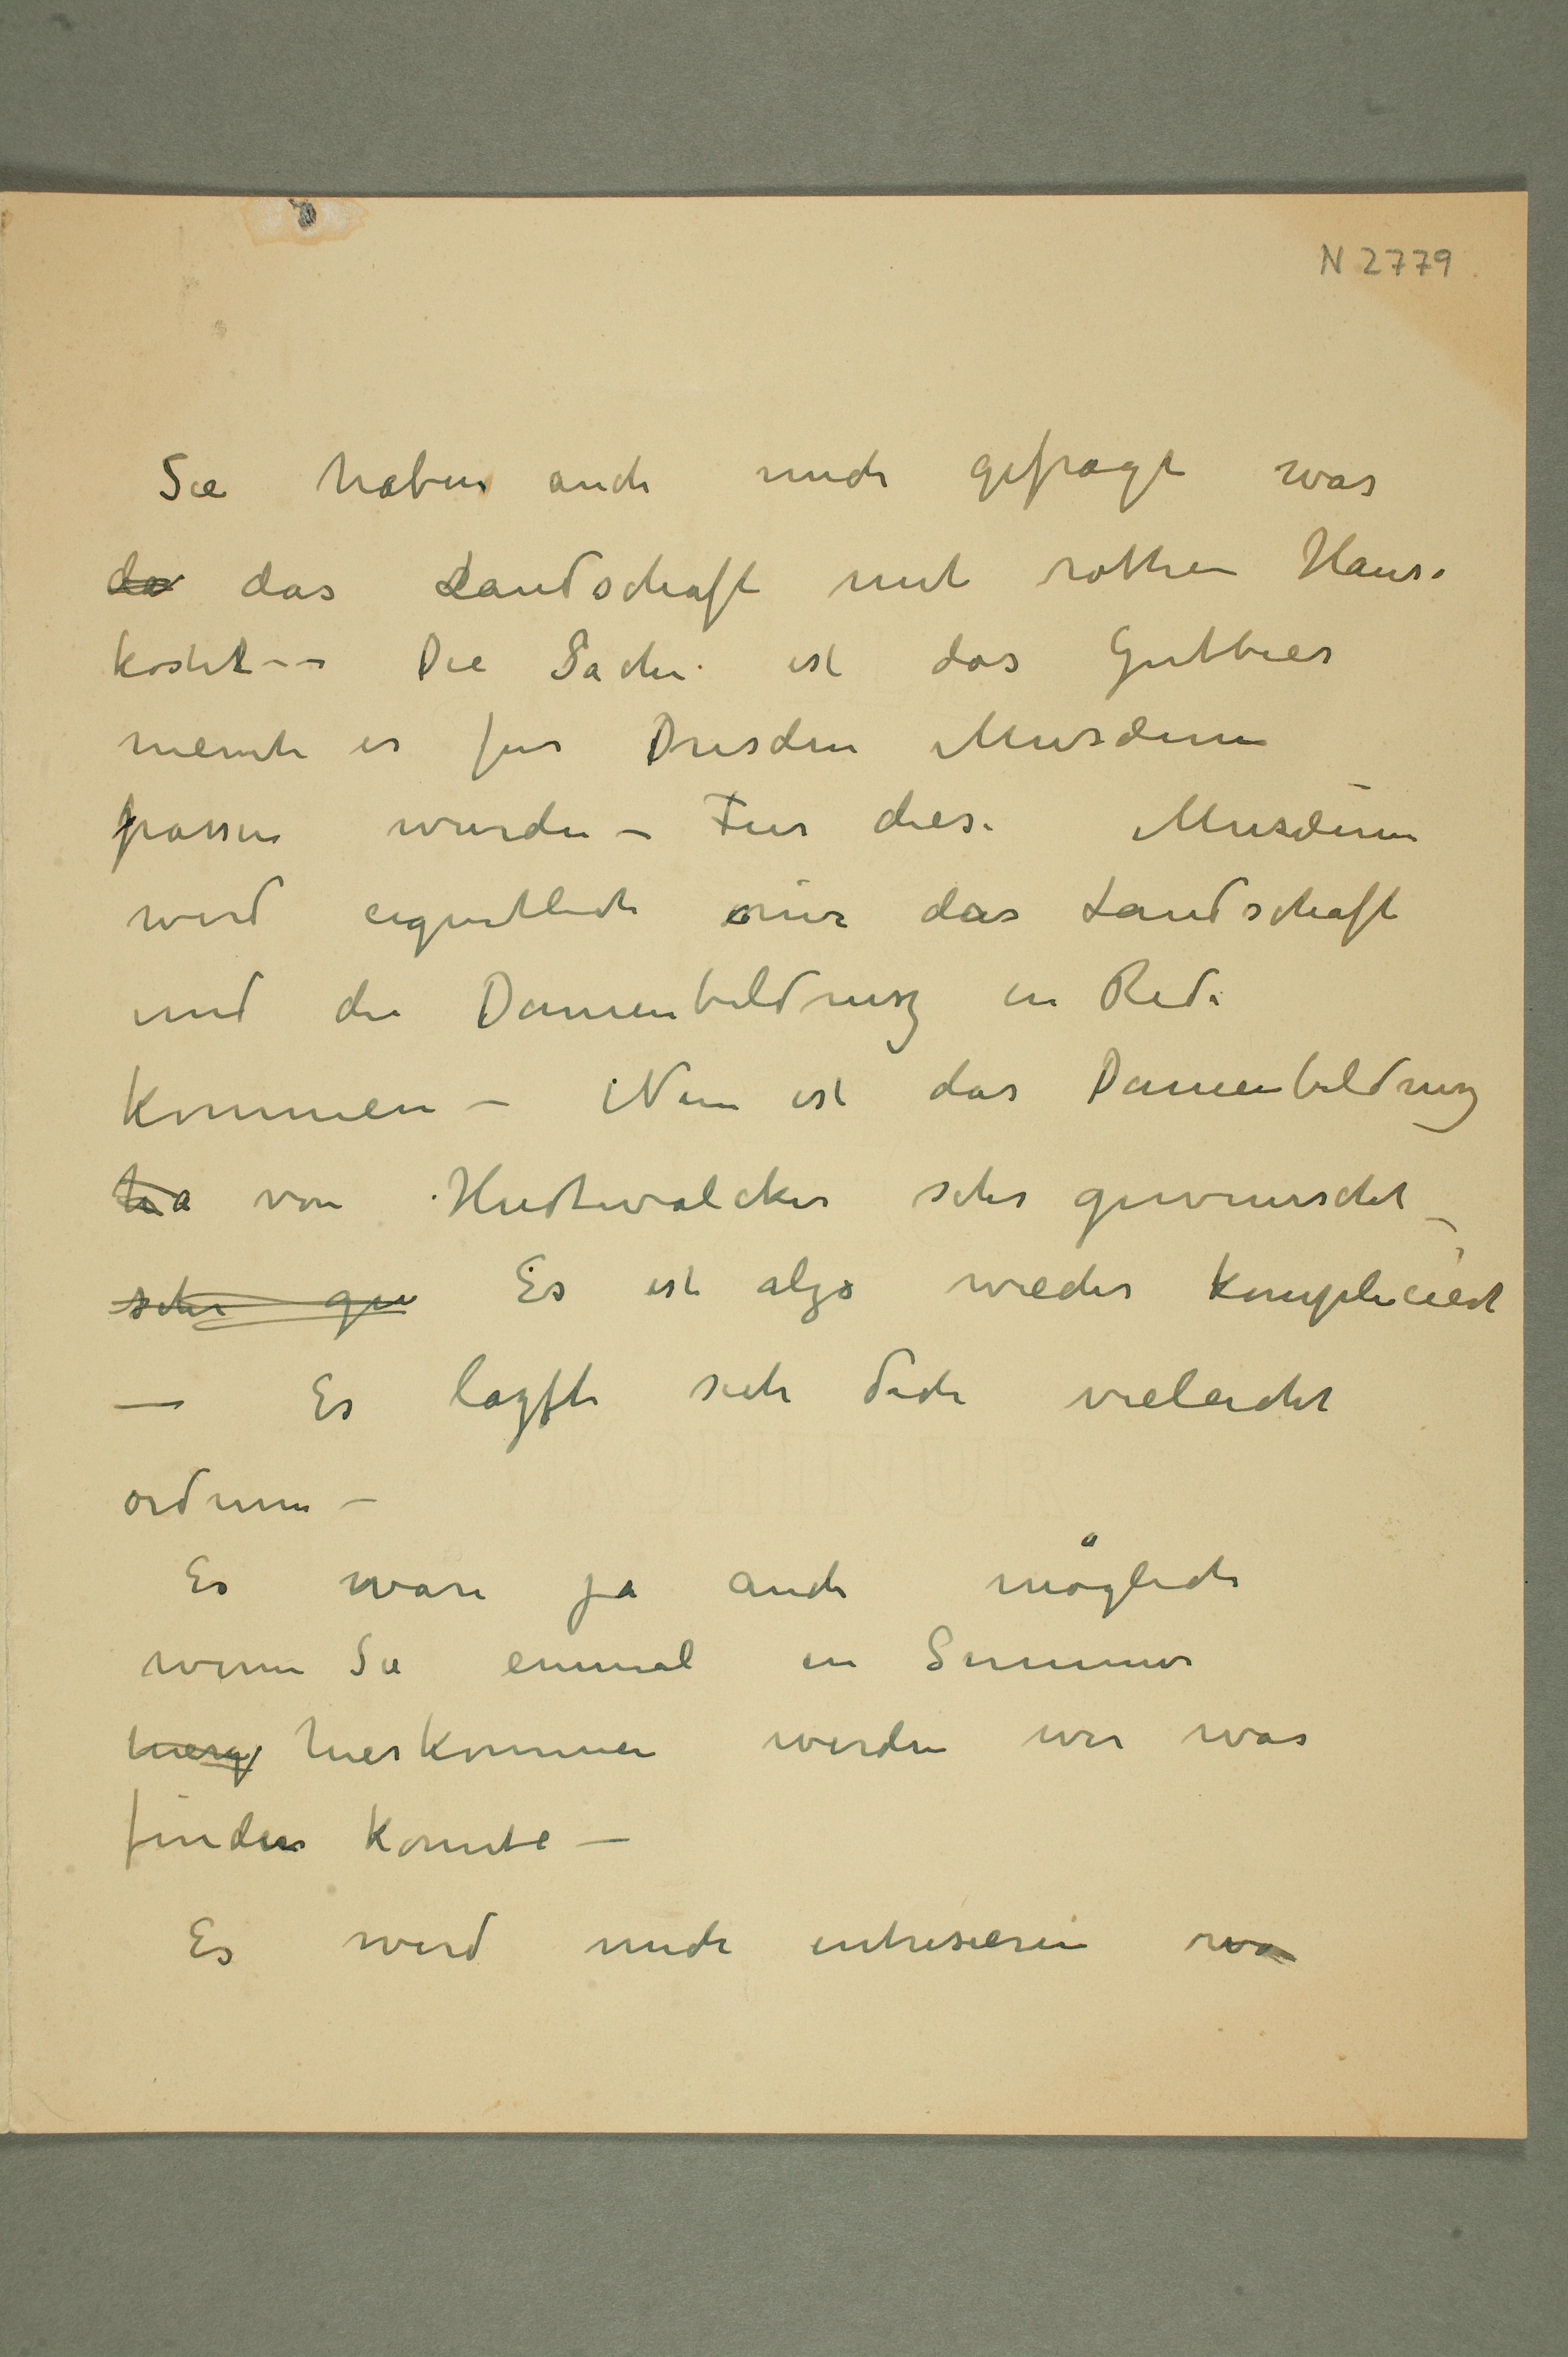 N 2779
Sie haben auch mich gefragt was
da das Landschaft mit rothen Hause
kostet -- Die Sache ist das Gutbier
meinte es fur Dresden Musæum
passen wurde – Fur diese Musæum
wird eigentlich nur das Landschaft
und die Damenbildnisz in Rede
kommen – Nun ist das Damenbildnisz
von Hudtwalcker sehr gewunscht –
sehr gew Es ist alzo wieder kompliciert
— Es lazst sich doch vieleicht
ordnen –
Es ware ja auch möglich
wenn Sie einmal in Summer
hierkommen werden wir was
finden konnte —
Es wird mich intresieren wa